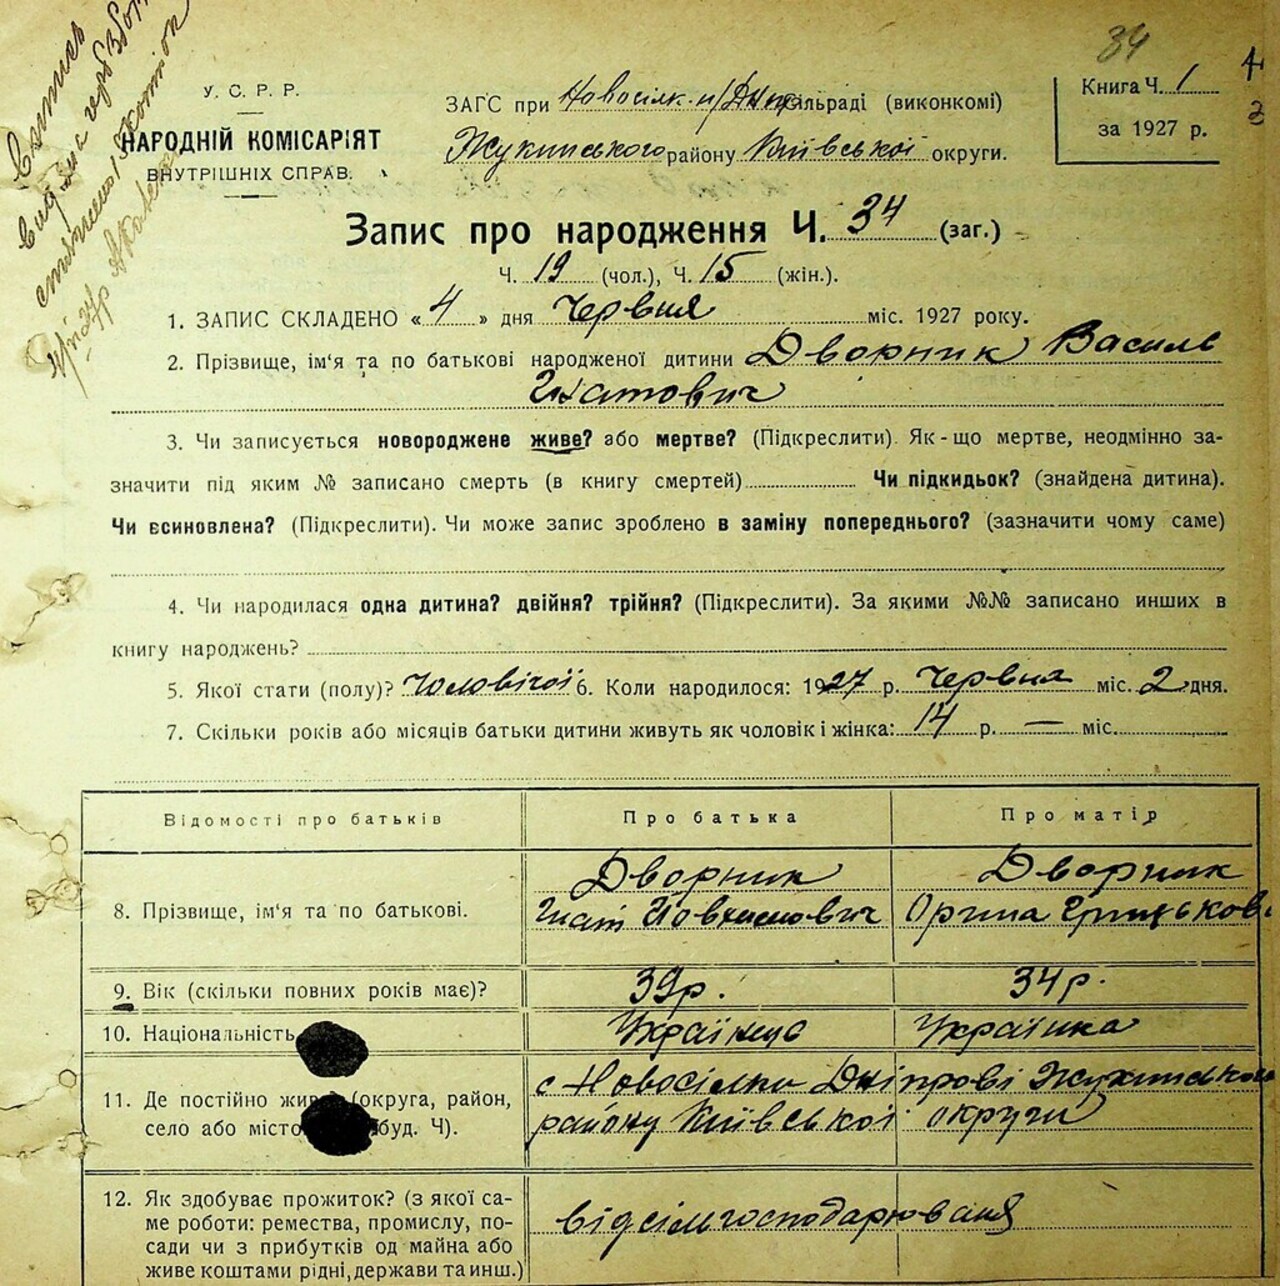 34
У. С. Р. Р.
НАРОДНІЙ КОМІСАРІЯТ
ВНУТРІШНІХ СПРАВ.
ЗАГС при Новосілк. н/Дніпр сільраді (виконкомі)
Жукинського району Київської округи.
Книга Ч. 1
за 1927 р.
Запис про народження Ч. 34 (заг.)
Ч. 19 (чол.), Ч. 15 (жін.).
1. ЗАПИС СКЛАДЕНО « 4 » дня Червня міс. 1927 року.
2. Прізвище, ім'я та по батькові народженої дитини Дворник Василь
Ігнатович
3. Чи записується новороджене живе? або мертве? (Підкреслити). Як-що мертве, неодмінно за-
значити під яким № записано смерть (в книгу смертей) Чи підкидьок? (знайдена дитина).
Чи всиновлена? (Підкреслити). Чи може запис зроблено в заміну попереднього? (зазначити чому саме)
4. Чи народилася одна дитина? двійня? трійня? (Підкреслити). За якими №№ записано инших в
книгу народжень?
5. Якої стати (полу)? Чоловічої 6. Коли народилося: 1927 р. Червня міс. 2 дня.
7. Скільки років або місяців батьки дитини живуть як чоловік і жінка: 14 р. — міс.
Відомості про батьків Про батька Про матір
Дворник Дворник
8. Прізвище, ім'я та по батькові. Гнат Йовхимович Орина Грицьков.
9. Вік (скільки повних років має)? 39 р. 34 р.
10. Національність Українець Українка
11. Де постійно жив (округа, район, с Новосілки Дніпрові Жукинського
село або місто буд. Ч). району Київської округи
12. Як здобуває прожиток? (з якої са-
ме роботи: ремества, промислу, по- від сільгосподарюваня
сади чи з прибутків од майна або
живе коштами рідні, держави та инш.)